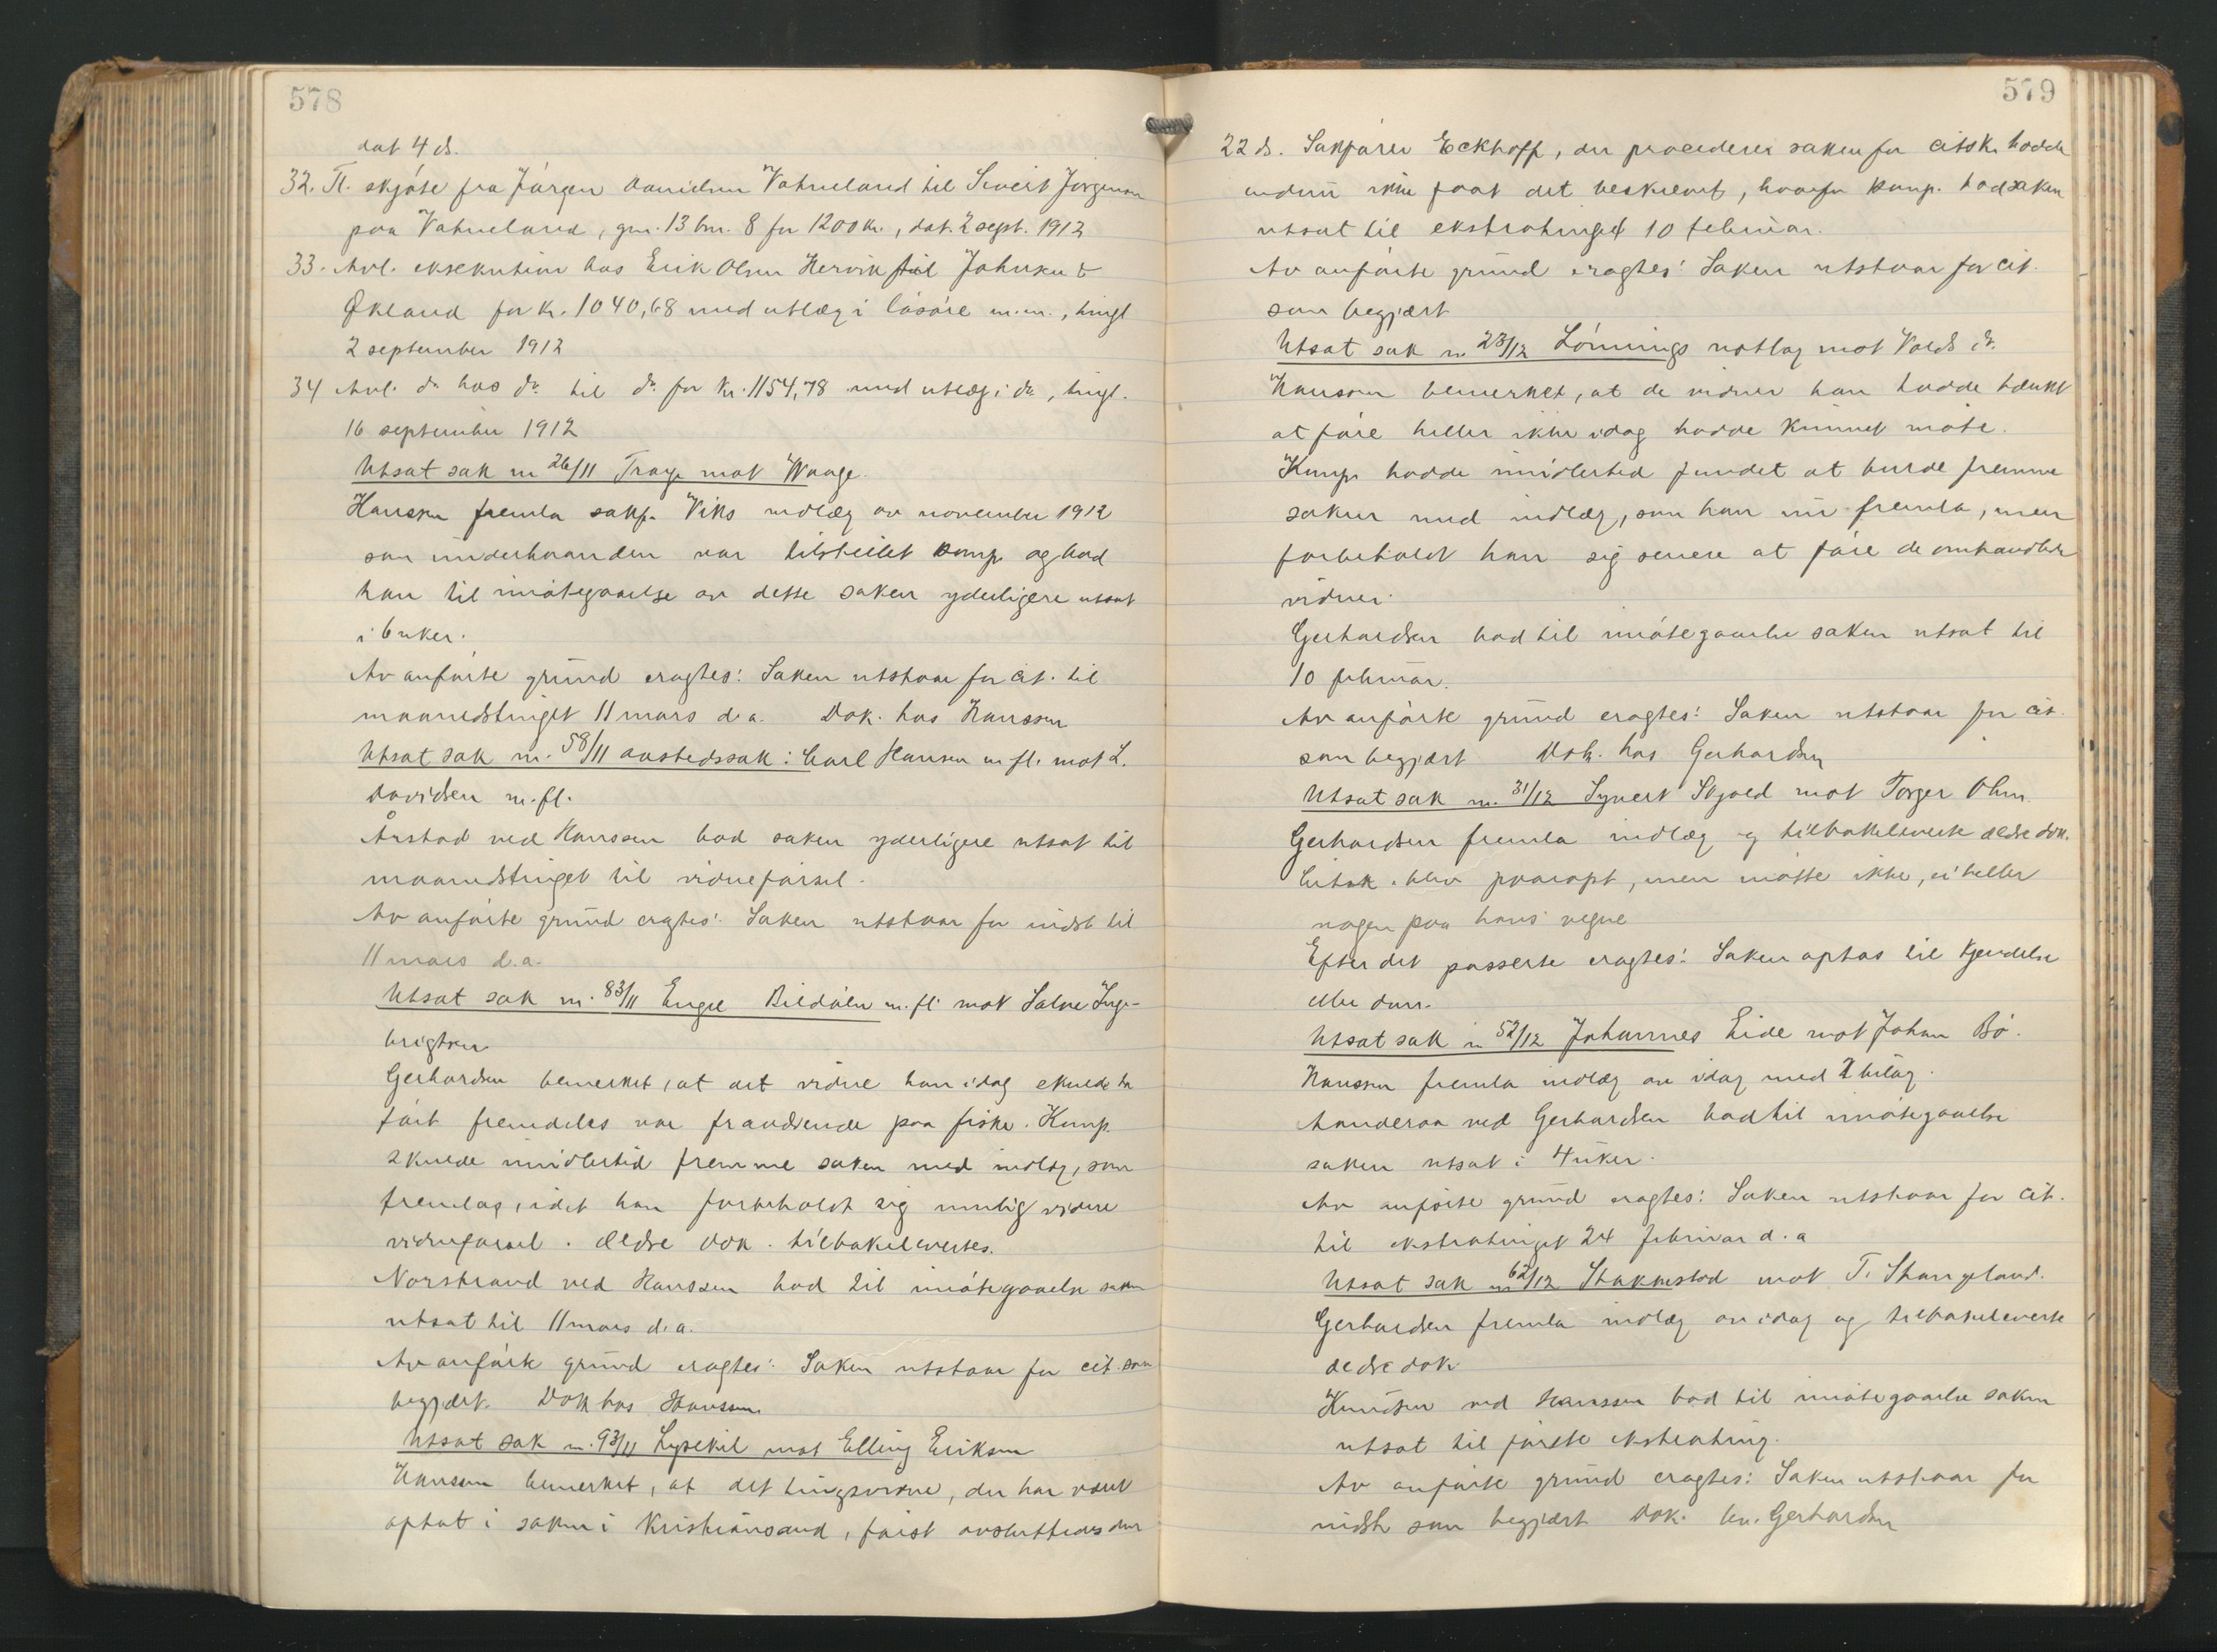 578
dat 4 ds.
32. Tl. skjøte fra Jørgen Davidsen Vatneland til Sivert Jørgensen
paa Vatneland, gnr. 13 bnr. 8 for 1200 kr., dat. 2 sept. 1912
33. Avl. eksekution hos Erik Olsen Hervik til Johnsen &
Økland for kr. 1040,68 med utlæg i løsøre m.m., tingl
2 september 1912
34 Avl. do hos do til do for kr. 1154,78 med utlæg i do, tingl.
16 september 1912
Utsat sak nr 26/11 Traye mot Waage.
Hanssen fremla sakf. Viks indlæg av november 1912
som underhaanden var tilstillet komp. og bad
han til imøtegaaelse av dette saken yderligere utsat
i 6 uker.
Av anførte grund eragtes: Saken utstaar for cit. til
maanedstinget 11 mars d.a. Dok. hos Hanssen
Utsat sak nr. 58/11 aastedssak: Carl Hansen m.fl. mot L.
Davidsen m.fl.
Årstad ved Hanssen bad saken yderligere utsat til
maanedstinget til vidneførsel.
Av anførte grund eragtes: Saken utstaar for indst. til
11 mars d.a.
Utsat sak nr. 83/11 Engel Bildøen m.fl. mot Salve Inge-
brigtsen
Gerhardsen bemerket, at det vidne han idag skulde ha
ført fremdeles var fraværende paa fiske. Komp.
skulde imidlertid fremme saken med indlæg, som
fremlag, idet han forbeholdt sig mulig videre
vidneførsel. Ældre dok. tilbakelevertes.
Norstrand ved Hanssen bad til imøtegaaelse saken
utsat til 11 mars d.a.
Av anførte grund eragtes: Saken utstaar for cit. som
begjært. Dok hos Hanssen
Utsat sak nr. 93/11 Lysekil mot Elling Eriksen
Hanssen bemerket, at det tingsvidne, der har været
optat i saken i Kristiansand, først avsluttedes den
579
22 ds. Sakfører Eckhoff, der procederer saken for citsk. hadde
endnu ikke faat det beskrevet, hvorfor komp. bad saken
utsat til ekstratinget 10 februar.
Av anførte grund eragtes: Saken utstaar for cit.
som begjært
Utsat sak nr 23/12 Lønnings notlag mot Valds do.
Hanssen bemerket, at de vidner han hadde tænkt
at føre heller ikke idag hadde kunnet møte.
Komp. hadde imidlertid fundet at burde fremme
saken med indlæg, som han nu fremla, men
forbeholdt han sig senere at føre de omhandlede
vidner.
Gerhardsen bad til imøtegaaelse saken utsat til
10 februar.
Av anførte grund eragtes: Saken utstaar for cit.
som begjært Dok. hos Gerhardsen
Utsat sak nr. 31/12 Syvert Skjold mot Torger Olsen
Gerhardsen fremla indlæg og tilbakeleverte ældre dok.
Citsk. blev paaropt, men møtte ikke, ei heller
nogen paa hans vegne
Efter det passerte eragtes: Saken optas til kjendelse
eller dom.
Utsat sak nr 52/12 Johannes Eide mot Johan Bø.
Hanssen fremla indlæg av idag med 2 bilag.
Handeraa ved Gerhardsen bad til imøtegaaelse
saken utsat i 4 uker.
Av anførte grund eragtes: Saken utstaar for cit.
til ekstratinget 24 februar d.a
Utsat sak nr 62/12 Stakkestad mot T. Stangeland.
Gerhardsen fremla indlæg av idag og tilbakeleverte
ældre dok.
Knudsen ved Hanssen bad til imøtegaaelse saken
utsat til første ekstrating.
Av anførte grund eragtes: Saken utstaar for
indst. som begjært Dok. lev. Gerhardsen